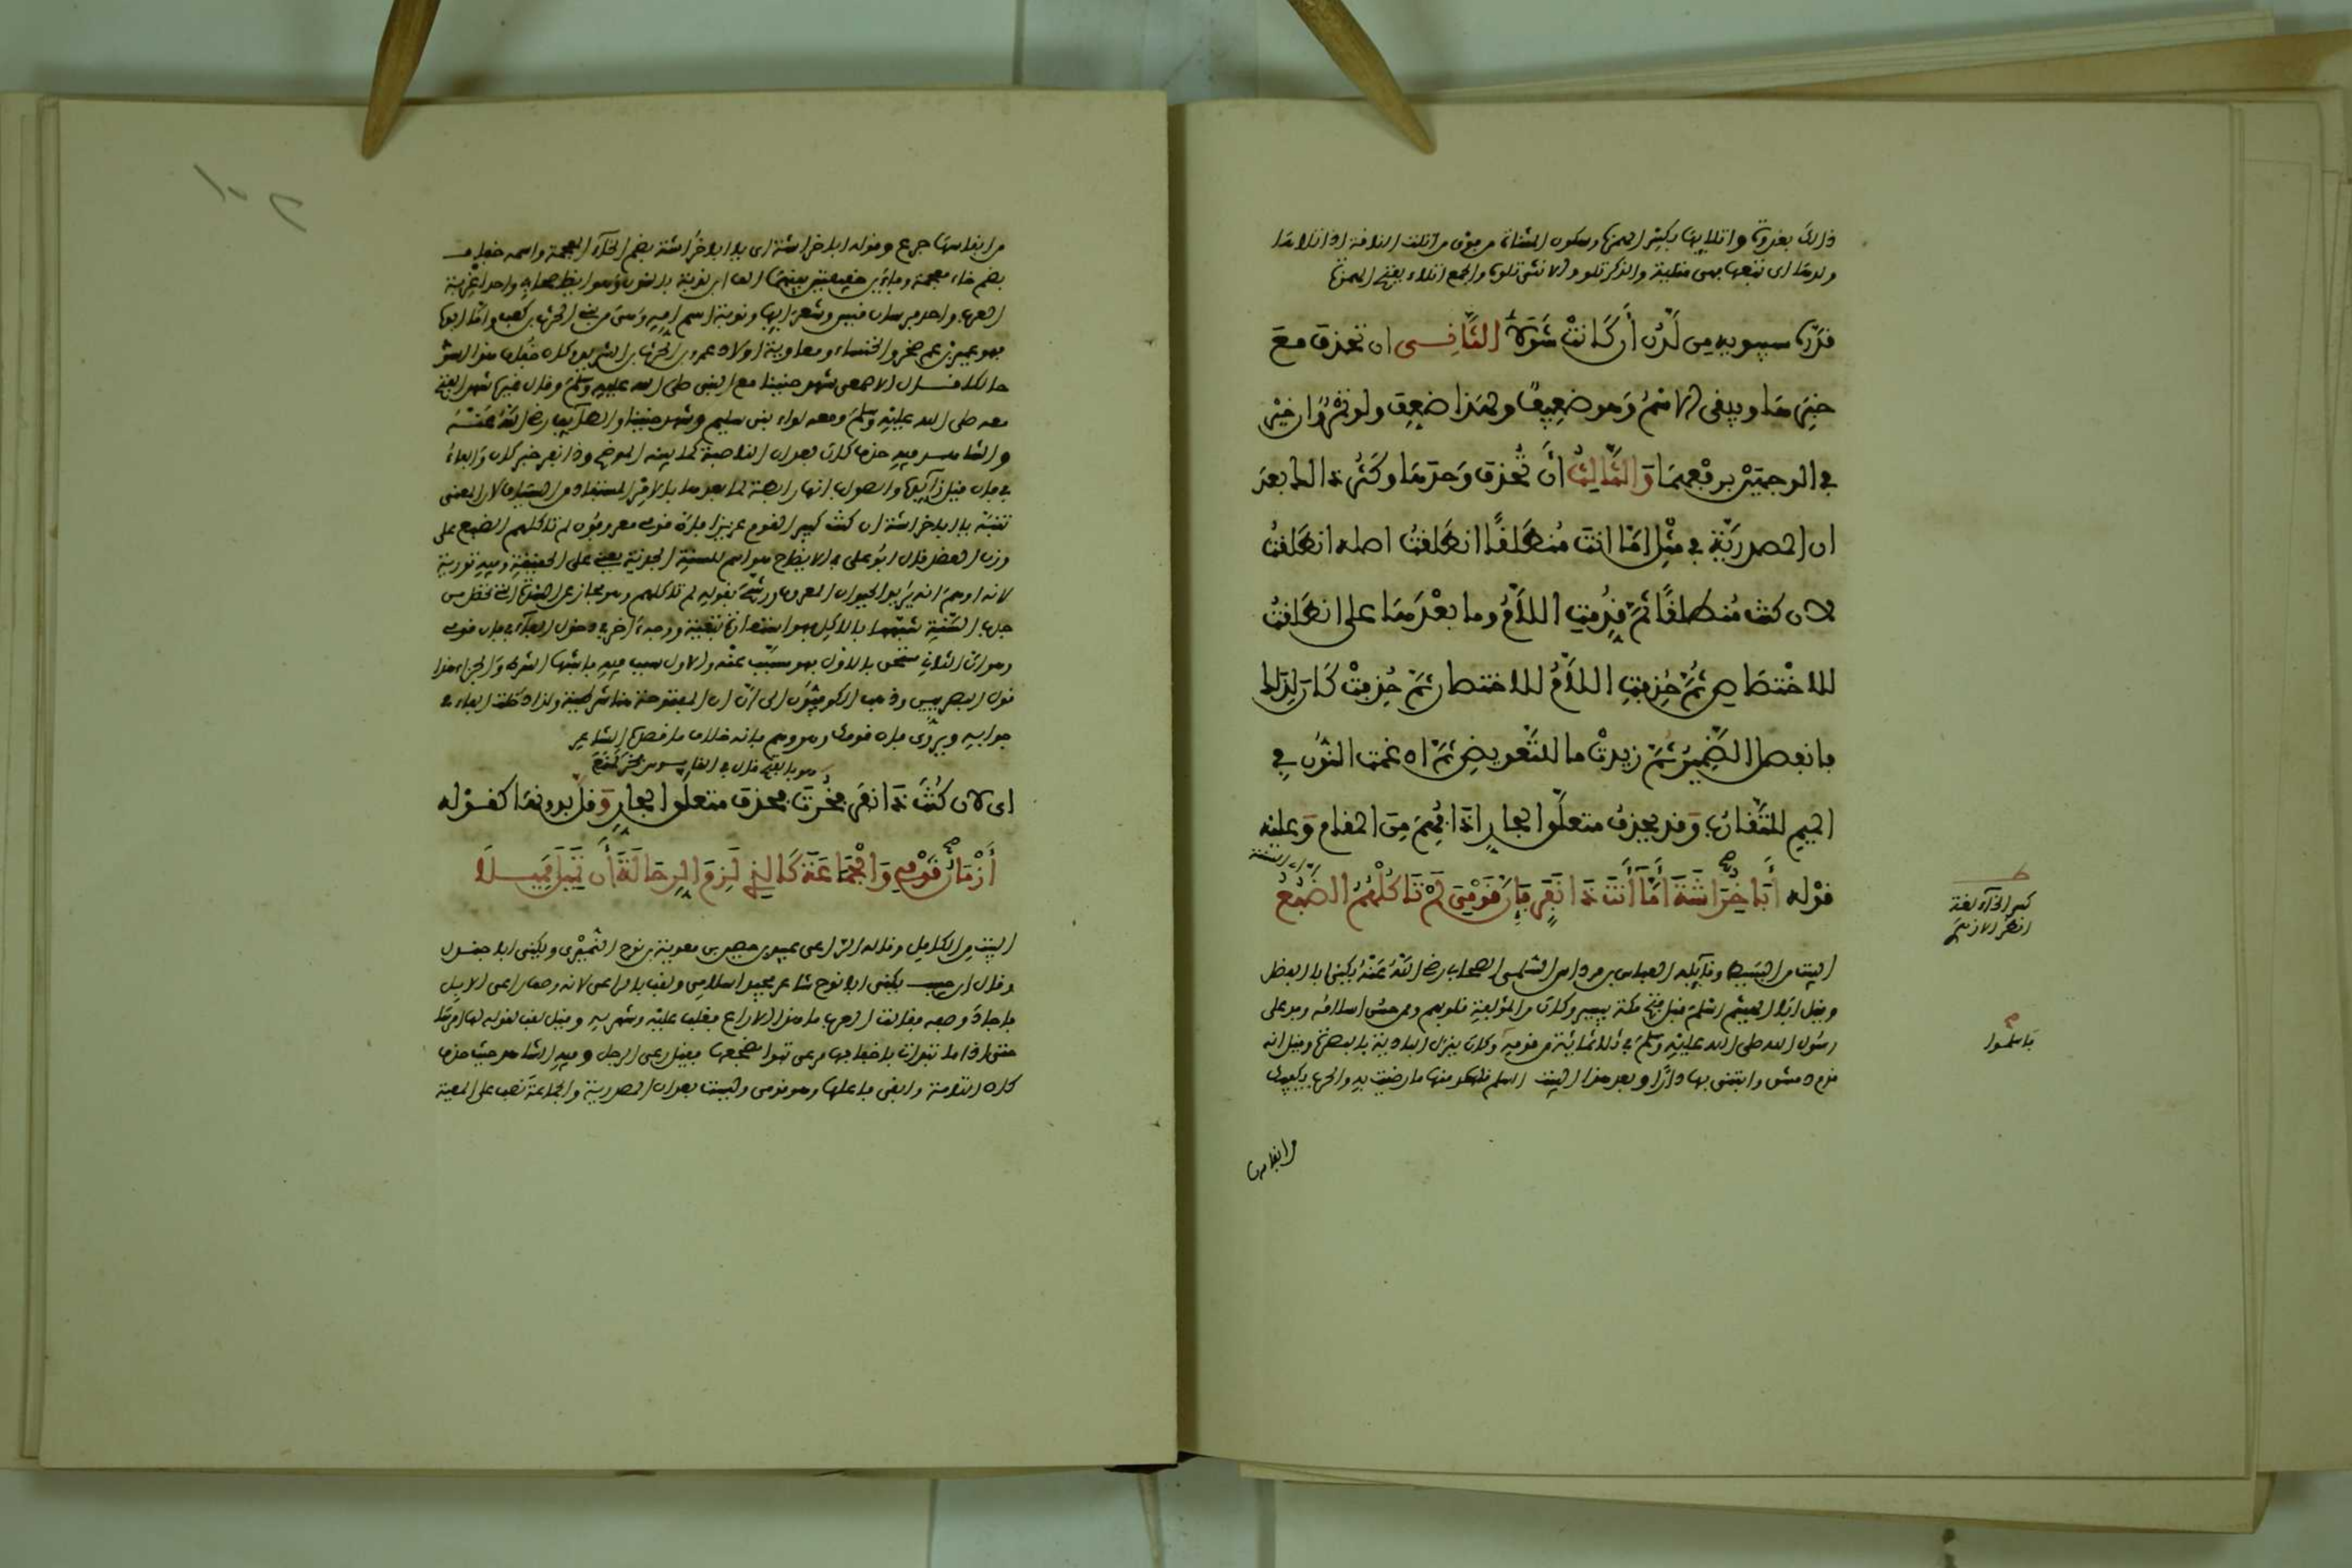 ذلك بغذوها واتلايها بكسر الهمزة وسكون المثناة من فوق من اتلت الناقة اذا تلاها
ولدها اى تبعها فهى متلية والذكر تلو والانثى تلوة والجمع اتلاء بفتح الهمزة
قدّرها سيبويه من لَدُن أن كَانتْ شَوْلا الثَّانِــى ان تحذف معَ
خبرِهَا ويبقى الاسمُ وَهو ضعِيفٌ ولهَذا ضعِف ولو تمْرٌ وان خيْرٌ
في الوجهيْن برفْعِهمَا وَالثَّالِثُ أنْ تُحذف وَحدَهَا وكَثُر ذالك بعدَ
ان المصدريَّة في مِثْلِ امّا انتَ مُنطَلقًا انطَلقتُ اصله انطَلقتُ
لان كنتَ مُنطلقًا ثمّ قُدِّمتِ اللّامُ وما بعْدهَا على انطَلقتُ
للاخْتصَاصِ ثُمّ حُذفتِ اللّامُ للاختصار ثمّ حُذفتْ كَان لِذالك
فانفصل الضّمِيرُ ثمّ زيدتْ ما للتّعويضِ ثمّ ادغمت النّون في
الميم للتّقارُب وَقد يحذفُ متعلّق الجار اذا فُهِمَ مِنَ المقام وَعليْه
قوْله أَبَا خُرَاشَةَ أَمَّا أَنتَ ذَا نَفَرٍ فَإِنَّ قَوْمِيَ لَمْ تَاكُلْهُمُ الضَّبُعُ
البيت من البَسِيط وقايله العباس بن مرداس السّلمى الصحابي رضي اللّهُ عَنْهُ يكنى ابا الفضل
وقيل ابَا الهيثم اسْلمَ قبل فتح مكة بيسير وكان من المؤلفة قلوبهم وممن حسُن اسلامُه وفد على
رسُول الله صلى الله عليْهِ وَسلّمَ في ثلاثمائة من قومِه وكان ينزل البادية بالبصرة وقيل انه
قدم دمشق وابتنى بها دارًا وبعد هذا البيت السلم تاخذ منها ما رضيت به والحرب يكفيك
كسر الخآء لغة
انظر الازهرى
فاسلموا
من انفاسها
من انفاسها جرع وقوله ابا خراشة اى يا ابا خُراشة بضم الخآء المعجمة واسمه خفاف
بضم خاء معجمة وفاءَيْن خفيفتين بينهما الف ابن ندبة بالنون وهو ايضا صحابي واحد اغربة
العرب واحد فرسان قيس وشعرائها وندبة اسم امه وَهى من بنى الحرث بن كعب وامّا ابوه
فهو عمير بن عم صخر والخنساء ومعاوية اولاد عمرو بن الحرث بن الشريد وكان خُفاف هذا اسود
حالكا قــال الاصمعى شهد حنينا مع النبى صلى الله عليه وسلّمَ وقال غيره شهد الفتح
معه صلى الله عليْهِ وَسلّمَ ومعه لواء بنى سليم وشهد حنينا والطآيف رضي اللّهُ عَنْهُ
والشاهــد فيه حذف كان بعد ان الناصبة كما بينه الموضح وذا نفر خبر كان والفاءُ
في فان قيل زآيدة والصواب انها رابطة لما بعدها بالامر المستفاد من السّياق لان المعنى
تنبّه يا ابا خراشة ان كنت كبير القوم عزيزا فان قومى معروفون لم تاكلهم الضبع على
وزن العضد قال ابو على في الايضاح هو اسم للسنة المجدبة يعنى على الحقيقة وفيه تورية
لانه اوهم انه يُرِيد الحيوان المعروف ورشّح بقوله لم تاكلهم وهو مجاز عن الشدة التى تحصل من
جدب السّنة شبّهها بالاكل فهو استعارة تبعية ووجهٌ آخر في دخول الفآء في فان قومى
وهو ان الثاني مستحق بالاول فهو مسبّب عنْه والاول سبب فيه فاشبها الشرط والجزاء هذا
قول البصريين وذهب الكوفيّون الى انّ ان المفتوحة هنا شرطية ولذا دخلت الفاء في
جوابه ويرْوى فان قومى وهو وهم فانه خلاف ما قصده الشاعر
اى لان كُنْتَ ذا نفر فخُرتَ فحذف متعلّق الجارِ وَقلّ بدونهَا كقوْله
أَزْمَانَ قَوْمِي وَالْجَمَاعَةَ كَالذِي لَزِمَ الرِّحَالَةَ أَن تَمِيلَ مَمِيــلَا
البيْت من الكامل وقاله الرّاعى عبيد بن حصين بن معوية بن نوح النُّميْرى ويكنى ابا جندل
وقال ابن حبيب يكنى ابا نوح شاعر مجيد اسلامى ولقب بالراعى لانه وصف راعى الابل
فاجادَ وصفه فقالت العرب ما هذا الا راع فغلب عليْه وشهر به وقيل لقب لقوله لها امرها
حتى اذا ما تبوات باخفافها مرعى تبوا مضجعها فقيل رعى الرجل وفيه الشاهد حيث حذف
كان التامة وابقى فاعلها وهو قومى وليست بعد ان المصدرية والجماعةَ نصب على المعية